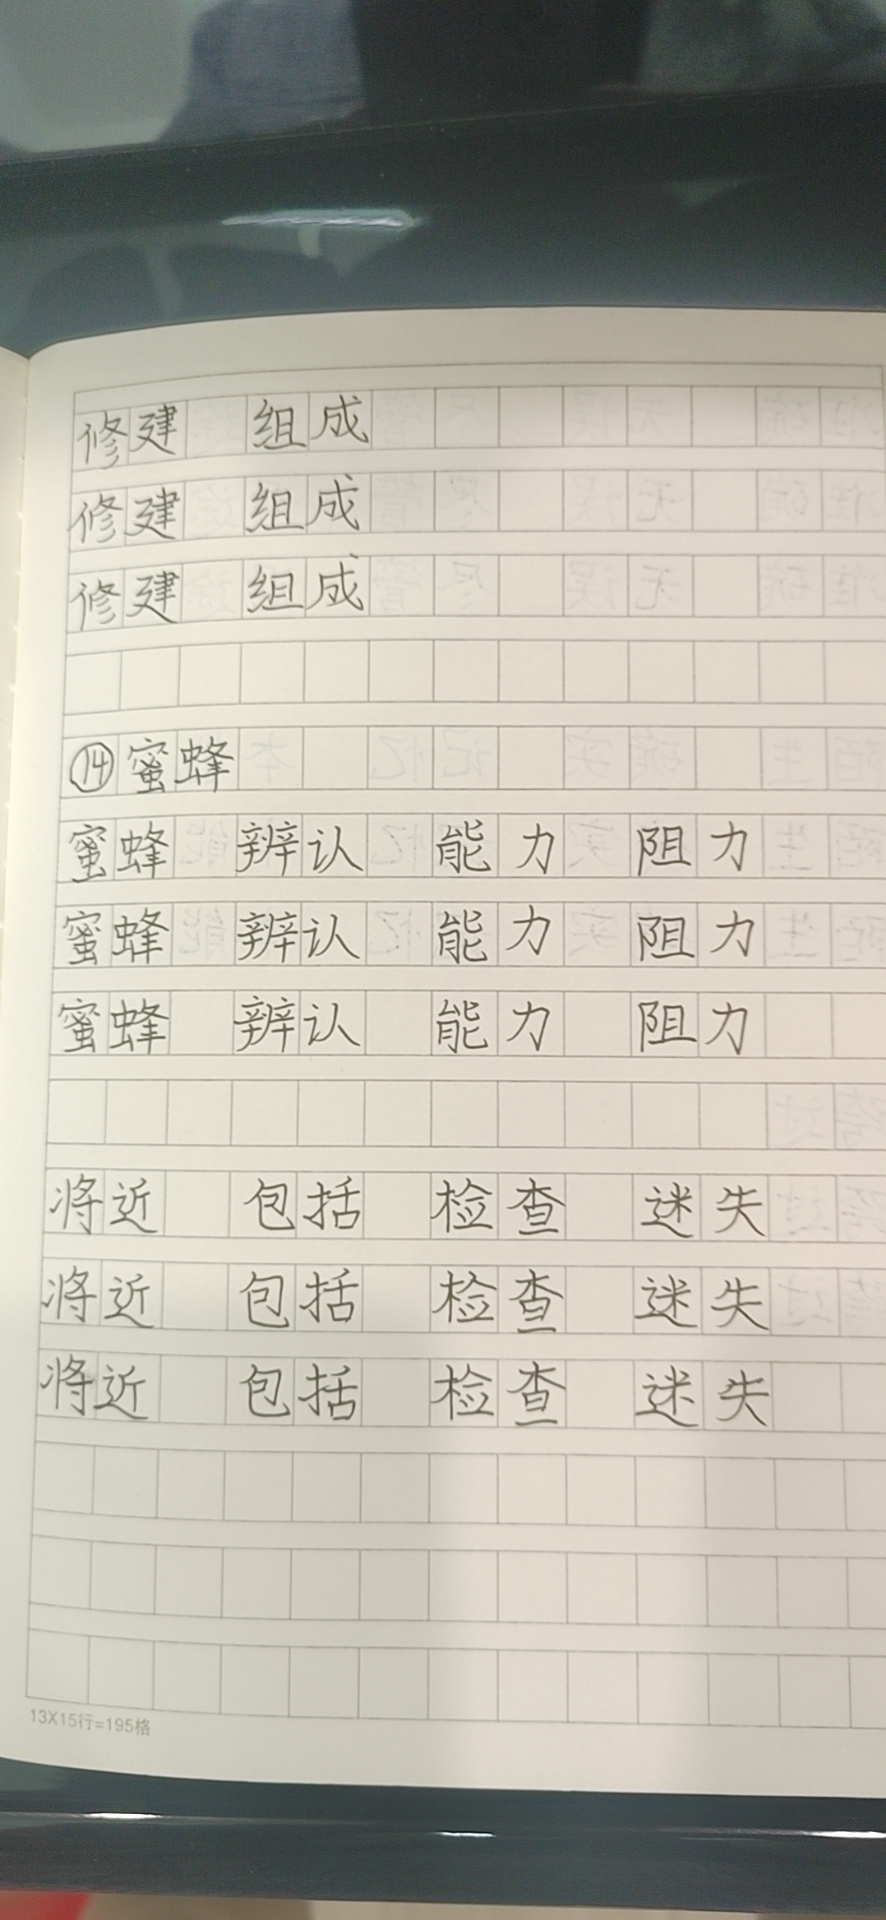 修建 组成
修建 组成
修建 组成
⑭蜜蜂
蜜蜂 辨认 能力 阻力
蜜蜂 辨认 能力 阻力
蜜蜂 辨认 能力 阻力
将近 包括 检查 迷失
将近 包括 检查 迷失
将近 包括 检查 迷失
13X15行=195格